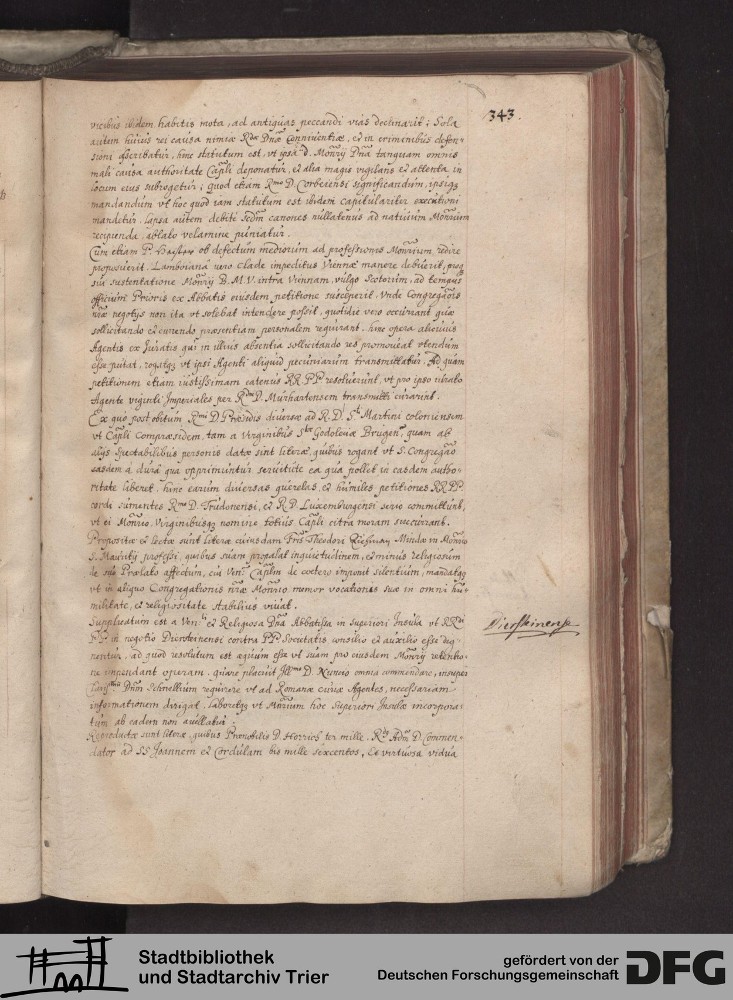 343.
vicibus ibidem habitis mota, ad antiquas peccandi vias declinarit; Sola
autem huius rei causa nimiæ Rdæ Dnæ Conniventiæ, et in criminibus defen-
sioni ascribatur, hinc statutum est, vt ipsa d. Monrij Dna tanquam omnis
mali causa authoritate Capli deponatur, et alia magis vigilans et attenta in
locum eius subrogetur; quod etiam Rmo D. Corbeiensi significandum, ipsiqz
mandandum vt hoc quod iam statutum est ibidem capitulariter executioni
mandetur, lapsa autem debite secdm canones nullatenus ad natiuum Monrium
recipienda, ablato velamine puniatur.
Cum etiam P. ob defectum mediorum ad professionis Monrium redire
proposuerit, Lamboiana vero clade impeditus Viennæ manere debuerit, proqz
sua sustentatione Monrij B.M.V. intra Viennam, vulgo Scotorum, ad tempus
officium Prioris ex Abbatis eiusdem petitione susceperit. Vnde Congregaois
nræ negotijs non ita vt solebat intendere possit, quotidie vero occurrant quæ
sollicitando et currendo præsentiam personalem requirant, hinc opera alicuius
Agentis ex Juratis qui in illius absentia sollicitando res promoueat vtendum
esse putat, rogatqz vt ipsi Agenti aliquid pecuniarum transmittatur. Ad quam
petitionem etiam iustissimam eatenus RR.PP. resoluerunt, vt pro ipso
Agente viginti Imperiales per Rdm D. Murhartensem transmitti curarint.
Ex quo post obitum Rmi D. Præsidis diuersæ ad R.D. Sti Martini coloniensem
vt Capli Compræsidem, tam a Virginibus Stæ Godoleuæ Brugen, quam ab
alijs spectabilibus personis datæ sint literæ, quibus rogant vt S. Congregao
easdem a dura qua opprimuntur seruitute ea qua pollet in easdem autho-
ritate liberet, hinc earum diuersas querelas, et humiles petitiones RR.PP.
cordi sumentes Rmo D. Trudonensi, et R.D. Luxemburgensi serio committunt,
vt ei Monrio, Virginibusqz nomine totius Capli citra moram succurrant.
Propositæ et lectæ sunt literæ cuiusdam Fris Theodori Mindæ in Monrio
S. Mauritij professi, quibus suam propalat inquietudinem, et minus religiosum
de suo Prælato affectum, cui Ven: Caplm de cœtero imponit silentium, mandatqz
vt in aliquo Congregationis nræ Monrio memor vocationis suæ in omni hu-
militate, et religiositate stabilius viuat.
Supplicatum est a Ven: et Religiosa Dna Abbatissa in superiori Insula vt RRdi
PP in negotio Diersteinensi contra PP. Societatis consilio et auxilio esse dig-
nentur, ad quod resolutum est æquum esse vt suam pro eiusdem Monrij retentio-
ne impendant operam, quare placuit Illmo D. Nuncio omnia commendare, insuper
Dnm Schnellium requirere vt ad Romanæ curiæ Agentes, necessariam
informationem dirigat, laboretqz vt Monrium hoc Superiori Insulæ incorpora-
tum ab eadem non auellatur.
Reproductæ sunt literæ, quibus Prænobilis D. Horrich ter mille, Rdus Admodum D. Commen-
dator ad SS. Joannem et Cordulam bis mille sexcentos, Et virtuosa vidua
Diersteinense
Stadtbibliothek
und Stadtarchiv Trier
gefördert von der
Deutschen Forschungsgemeinschaft
DFG